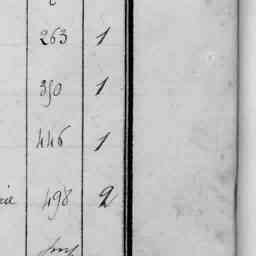 263 1
350 1
446 1
498 2